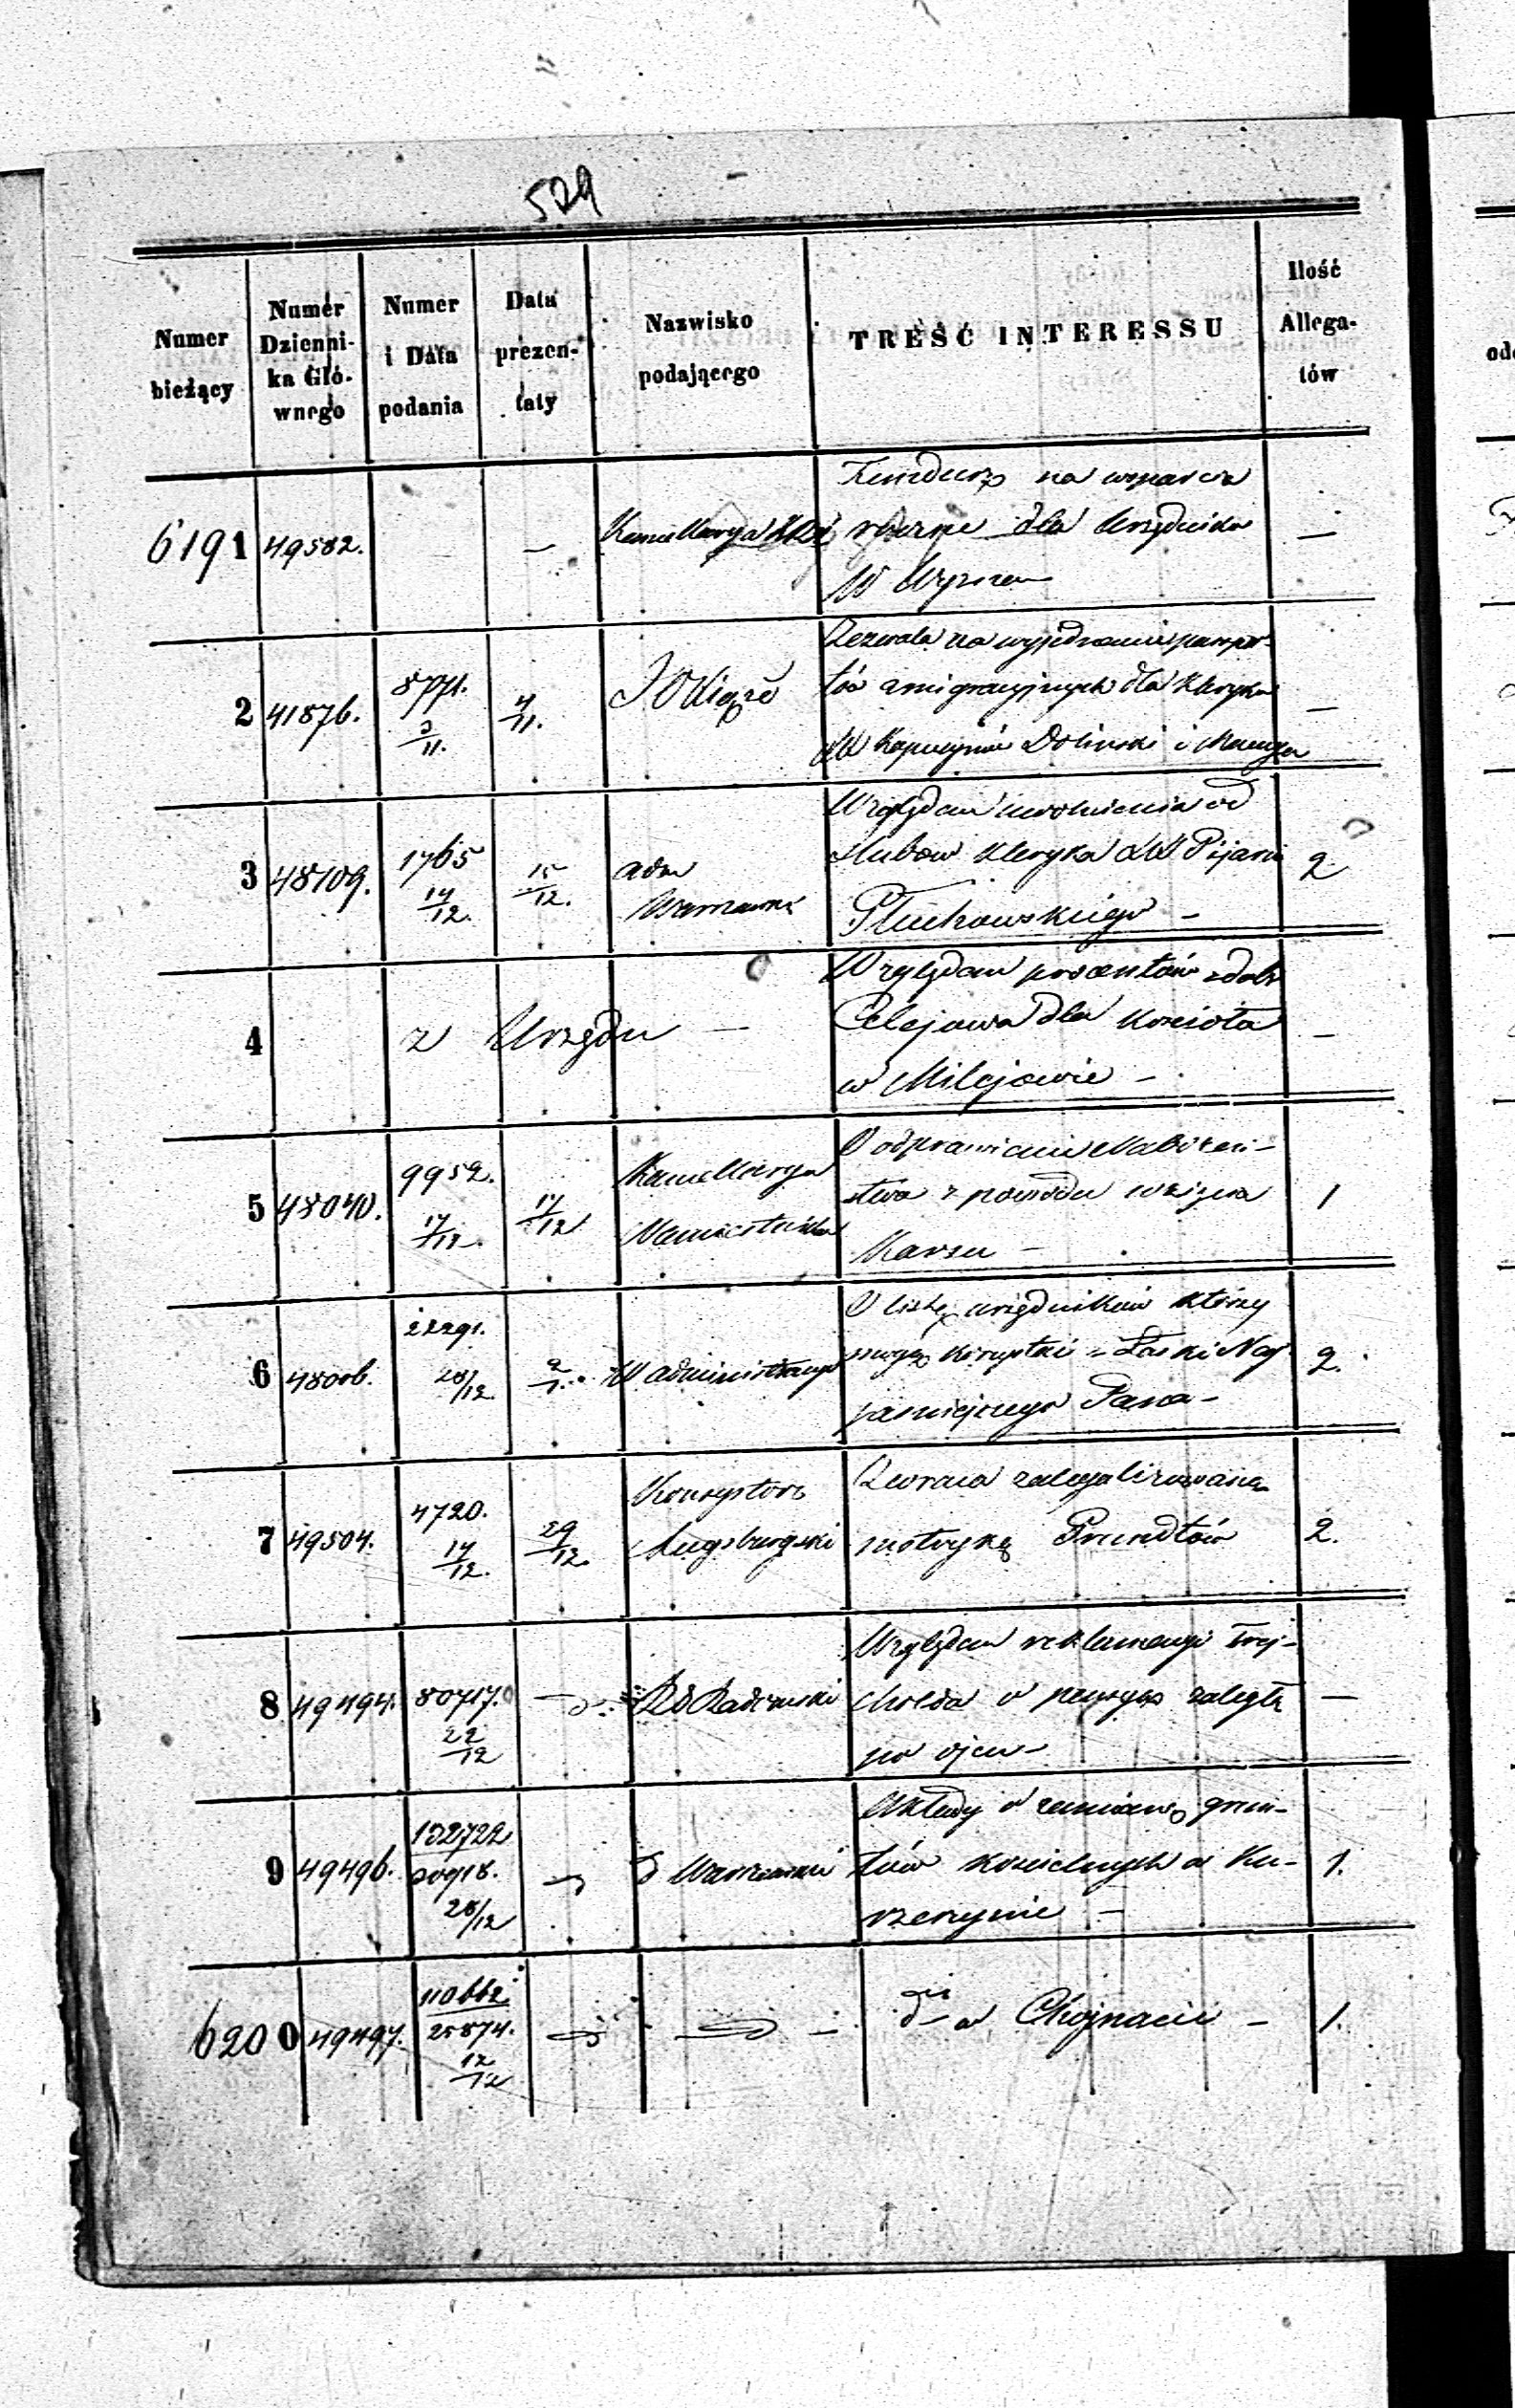 529
Numer bieżący
Numer Dziennika Głównego
Numer i Data podania
Data prezentaty
Nazwisko podającego
TREŚĆ INTERESSU
Ilość Allegatów
6191 49582. — Kancellarya
Fundusz na wsparcia
dla Urzędnika
—
2 41876. 8771. 3/11. 4/11. JO Xiąże
Zezwala na wyjednanie paszpor-
tów emigracyjnych dla Kleryków
XX Kapucynów Doliński i
—
3 48109. 1765 14/12. 15/12. adm Warszawski
Względem uwolnienia od
slubów Kleryka XX Pijarów
Płuchowskiego —
2
4 z Urzędu —
Względem procentów z dóbr
Celejowa dla Kościoła
w Milejowie —
—
5 48040. 9952. 17/12. 17/12 Kancellarya Namiestnika
O odprawienie Nabożeń-
stwa z powodu wzięcia
Karsu —
1
6 48006. 22291. 28/12. 2/1. W administracyi
O listę urzędników którzy
z Łaski Naj-
jaśniejszego Pana —
2.
7 49504. 4720. 14/12. 29/12. Konsystorz Augsburgski
Zwraca zalegalizowaną
metrykę Prundtów
2.
8 49494. 80717. 22/12 — RG Radomski
Względem reklamacyi Trej-
chołda o pensyę zaległą
po ojcu —
—
9 49496. 132722 30918. 28/12 — G Warszawski
Układy o zamianę grun-
tów kościelnych w Ku-
rzeszynie —
1.
6200 49497. 110662 25874. 12/12 — —
dto w Chojnacie —
1.